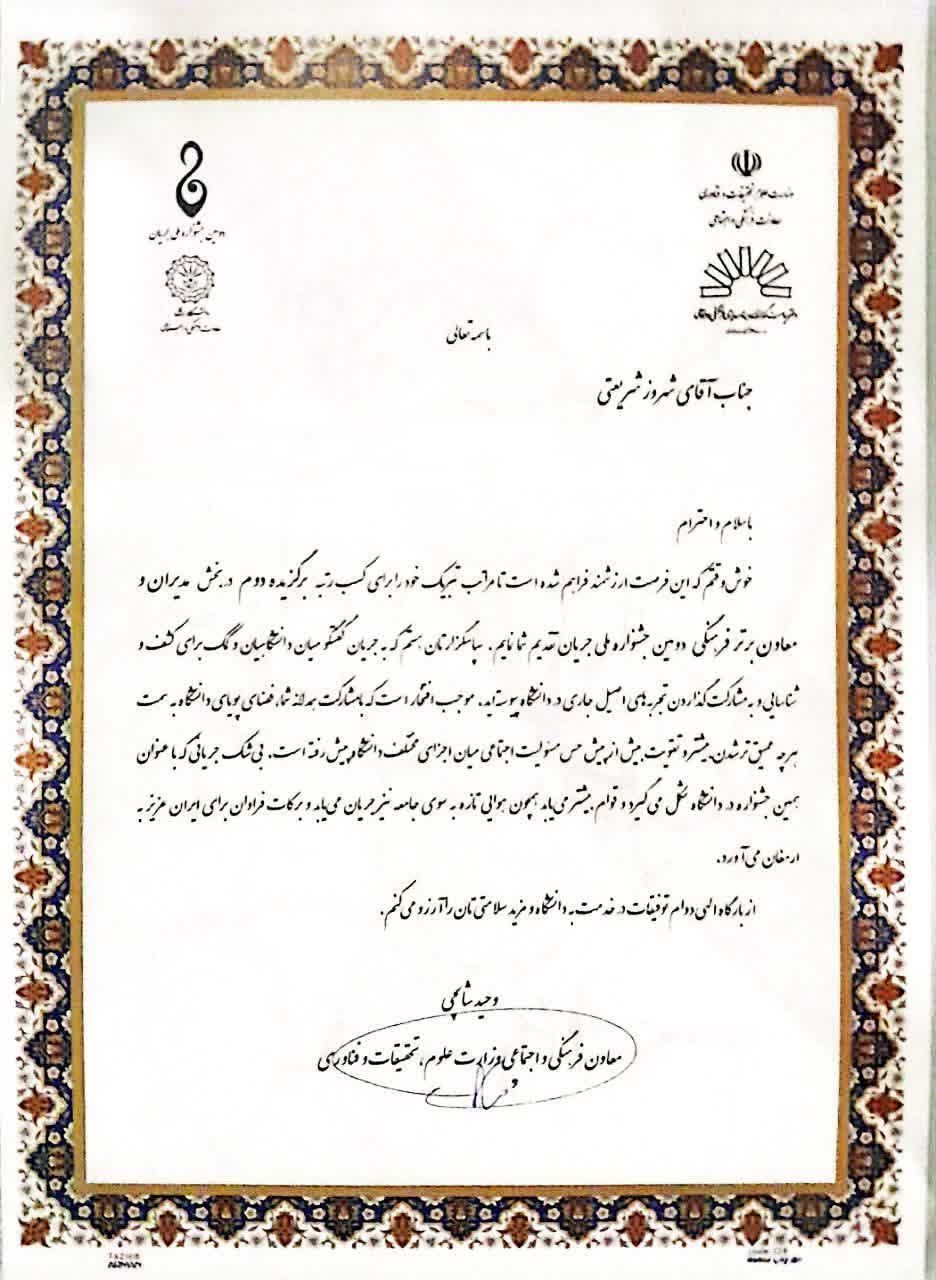 وزارت علوم، تحقیقات و فناوری
معاونت فرهنگی و اجتماعی
دومین جشنواره ملی جریان
باسمه تعالی
جناب آقای شهروز شریعتی
با سلام و احترام
خوش‌وقتم که این فرصت ارزشمند فراهم شده است تا مراتب تبریک خود را برای کسب رتبه برگزیده دوم در بخش مدیران و
معاون برتر فرهنگی دومین جشنواره ملی جریان تقدیم شما نمایم. سپاسگزارتان هستم که به جریان گفتگو میان دانشگاهیان و کمک برای کشف و
شناسایی و به مشارکت گذاردن تجربه‌های اصیل جاری در دانشگاه پیوسته‌اید. موجب افتخار است که با مشارکت همدلانه شما، فضای پویای دانشگاه به سمت
هرچه عمیق‌تر شدن بیشتر و تقویت بیش از پیش حس مسئولیت اجتماعی میان اجزای مختلف دانشگاه پیش رفته است. بی‌شک جریانی که با عنوان
همین جشنواره در دانشگاه شکل می‌گیرد و قوام بیشتر می‌یابد همچون هوایی تازه به سوی جامعه نیز جریان می‌یابد و برکات فراوان برای ایران عزیز به
ارمغان می‌آورد.
از بارگاه الهی دوام توفیقات در خدمت به دانشگاه و مزید سلامتی‌تان را آرزو می‌کنم.
وحید شالچی
معاون فرهنگی و اجتماعی وزارت علوم، تحقیقات و فناوری